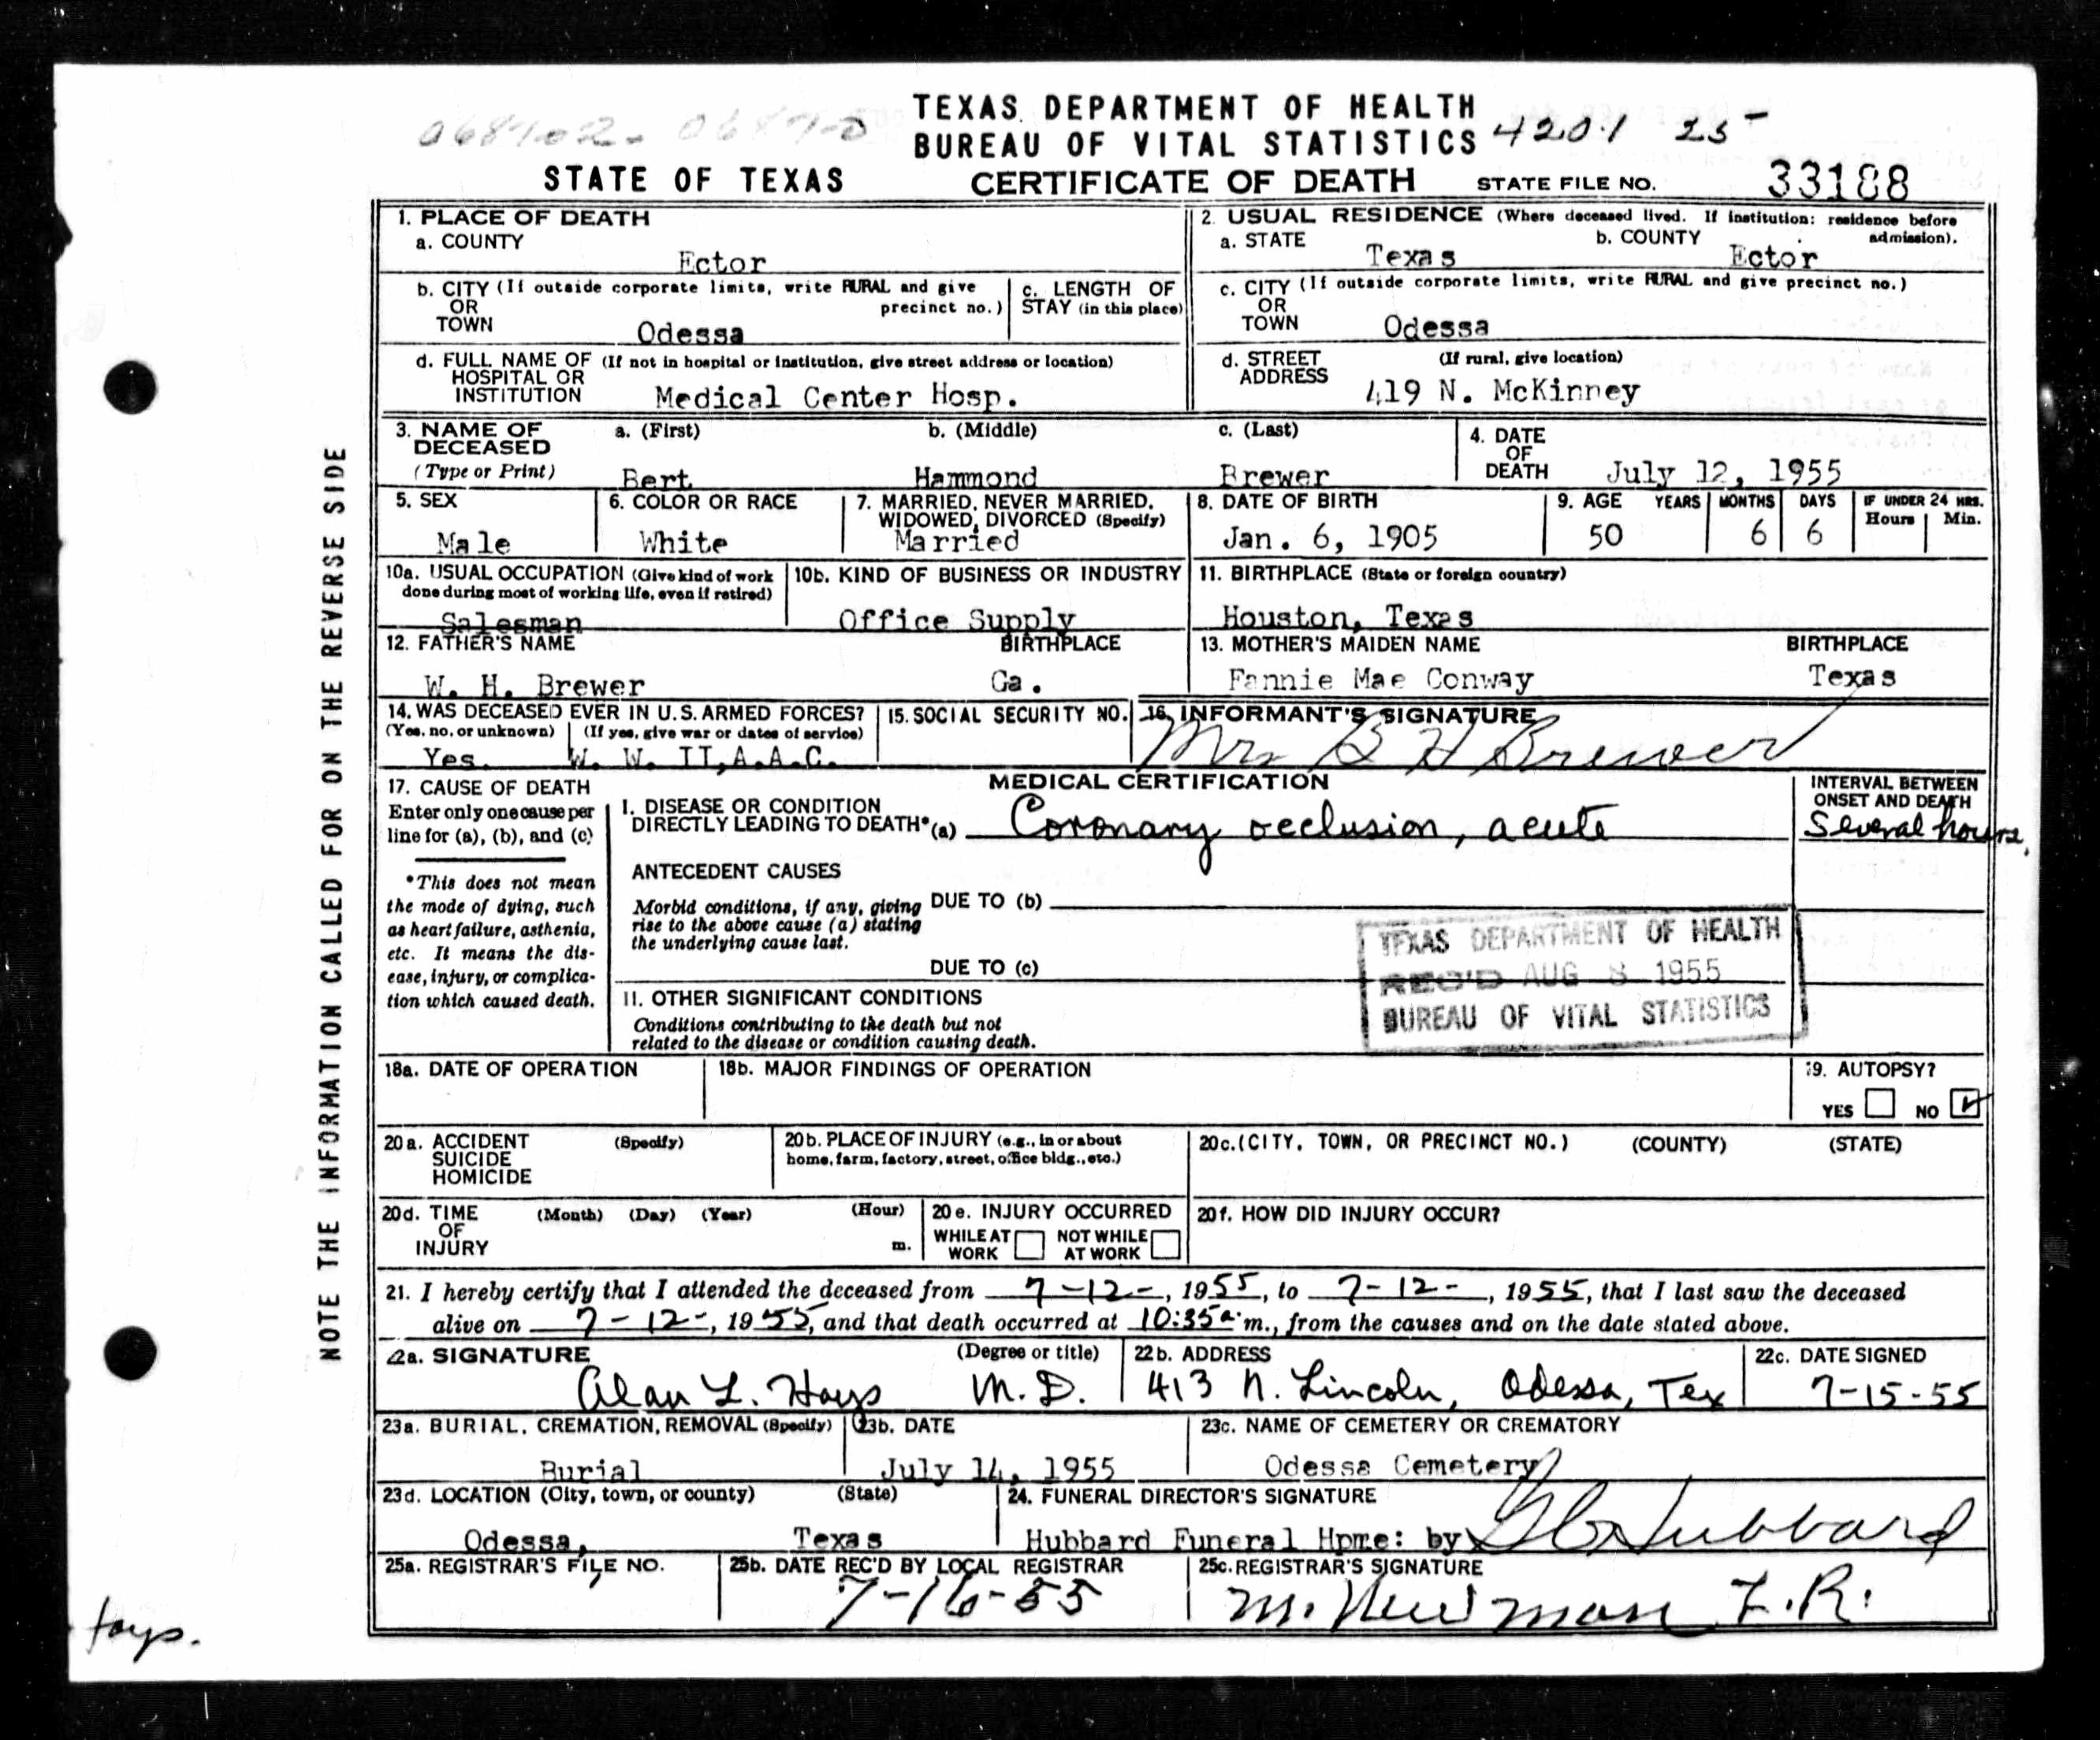 TEXAS DEPARTMENT OF HEALTH
BUREAU OF VITAL STATISTICS 4201 25
STATE OF TEXAS CERTIFICATE OF DEATH STATE FILE NO. 33188
NOTE THE INFORMATION CALLED FOR ON THE REVERSE SIDE
1. PLACE OF DEATH
a. COUNTY
Ector
2. USUAL RESIDENCE (Where deceased lived. If institution: residence before admission).
a. STATE b. COUNTY
Texas Ector
b. CITY (If outside corporate limits, write RURAL and give
OR precinct no.)
TOWN
Odessa
c. LENGTH OF
STAY (in this place)
c. CITY (If outside corporate limits, write RURAL and give precinct no.)
OR
TOWN Odessa
d. FULL NAME OF (If not in hospital or institution, give street address or location)
HOSPITAL OR
INSTITUTION Medical Center Hosp.
d. STREET (If rural, give location)
ADDRESS 419 N. McKinney
3. NAME OF a. (First) b. (Middle) c. (Last)
DECEASED
(Type or Print) Bert Hammond Brewer
4. DATE
OF
DEATH July 12, 1955
5. SEX
Male
6. COLOR OR RACE
White
7. MARRIED, NEVER MARRIED,
WIDOWED, DIVORCED (Specify)
Married
8. DATE OF BIRTH
Jan. 6, 1905
9. AGE YEARS MONTHS DAYS IF UNDER 24 HRS.
Hours Min.
50 6 6
10a. USUAL OCCUPATION (Give kind of work
done during most of working life, even if retired)
Salesman
10b. KIND OF BUSINESS OR INDUSTRY
Office Supply
11. BIRTHPLACE (State or foreign country)
Houston, Texas
12. FATHER'S NAME BIRTHPLACE
W. H. Brewer Ga.
13. MOTHER'S MAIDEN NAME BIRTHPLACE
Fannie Mae Conway Texas
14. WAS DECEASED EVER IN U.S. ARMED FORCES?
(Yes, no, or unknown) (If yes, give war or dates of service)
Yes. W. W. II,A.A.C.
15. SOCIAL SECURITY NO.
16. INFORMANT'S SIGNATURE
Mrs B H Brewer
17. CAUSE OF DEATH
Enter only one cause per
line for (a), (b), and (c)
*This does not mean
the mode of dying, such
as heart failure, asthenia,
etc. It means the dis-
ease, injury, or complica-
tion which caused death.
MEDICAL CERTIFICATION
I. DISEASE OR CONDITION
DIRECTLY LEADING TO DEATH*(a) Coronary occlusion, acute
INTERVAL BETWEEN
ONSET AND DEATH
Several hours.
ANTECEDENT CAUSES
Morbid conditions, if any, giving DUE TO (b)
rise to the above cause (a) stating
the underlying cause last.
DUE TO (c)
TEXAS DEPARTMENT OF HEALTH
REC'D AUG 8 1955
BUREAU OF VITAL STATISTICS
II. OTHER SIGNIFICANT CONDITIONS
Conditions contributing to the death but not
related to the disease or condition causing death.
18a. DATE OF OPERATION
18b. MAJOR FINDINGS OF OPERATION
19. AUTOPSY?
YES NO
20a. ACCIDENT (Specify)
SUICIDE
HOMICIDE
20b. PLACE OF INJURY (e.g., in or about
home, farm, factory, street, office bldg., etc.)
20c. (CITY, TOWN, OR PRECINCT NO.) (COUNTY) (STATE)
20d. TIME (Month) (Day) (Year) (Hour)
OF
INJURY m.
20e. INJURY OCCURRED
WHILE AT NOT WHILE
WORK AT WORK
20f. HOW DID INJURY OCCUR?
21. I hereby certify that I attended the deceased from 7-12-, 1955, to 7-12-, 1955, that I last saw the deceased
alive on 7-12-, 1955, and that death occurred at 10:35 a. m., from the causes and on the date stated above.
22a. SIGNATURE (Degree or title)
Alan L. Hays M.D.
22b. ADDRESS
413 N. Lincoln, Odessa, Tex
22c. DATE SIGNED
7-15-55
23a. BURIAL, CREMATION, REMOVAL (Specify)
Burial
23b. DATE
July 14, 1955
23c. NAME OF CEMETERY OR CREMATORY
Odessa Cemetery
23d. LOCATION (City, town, or county) (State)
Odessa, Texas
24. FUNERAL DIRECTOR'S SIGNATURE
Hubbard Funeral Hpme: by Hubbard
25a. REGISTRAR'S FILE NO.
25b. DATE REC'D BY LOCAL REGISTRAR
7-16-55
25c. REGISTRAR'S SIGNATURE
M. Newman L.R.